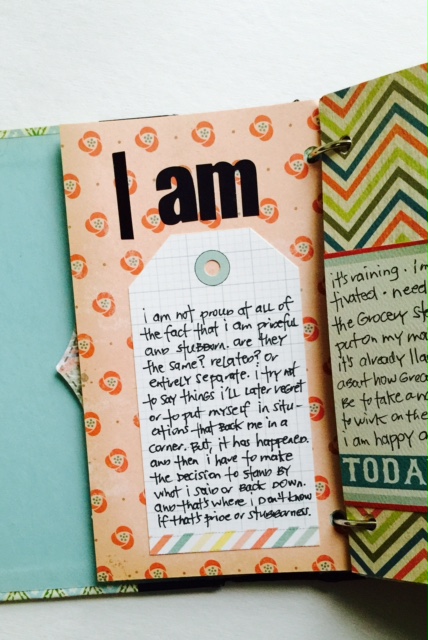 I am
i am not proud at all of
the fact that i am prideful
and stubborn. are they
the same? related? or
entirely separate. i try not
to say things i'll later regret
or to put myself in situ-
ations that back me in a
corner. But, it has happened.
and then i have to make
the decision to stand by
what i said or back down.
and that's where i don't know
if that's pride or stubbornness.
it's raining. i'm
tivated. need
the Grocery st
put on my ma
it's already 11a
about how Grea
Be to take a n
to work on the
i am happy a
TODA